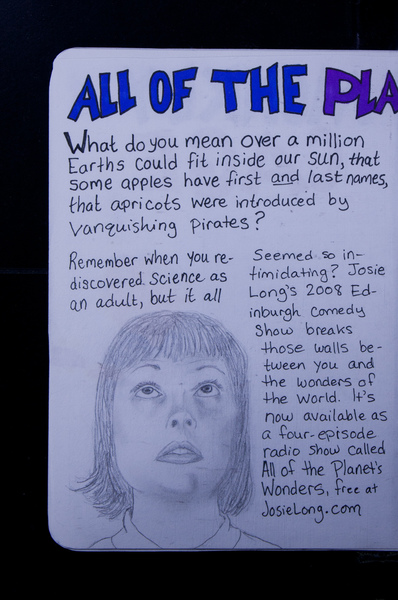 ALL OF THE PLA
What do you mean over a million
Earths could fit inside our sun, that
some apples have first and last names,
that apricots were introduced by
Vanquishing Pirates?
Remember when you re-
discovered science as
an adult, but it all
Seemed so in-
timidating? Josie
Long's 2008 Ed-
inburgh Comedy
Show breaks
those walls be-
tween you and
the wonders of
the world. It's
now available as
a four-episode
radio show called
All of the Planet's
Wonders, free at
JosieLong.com